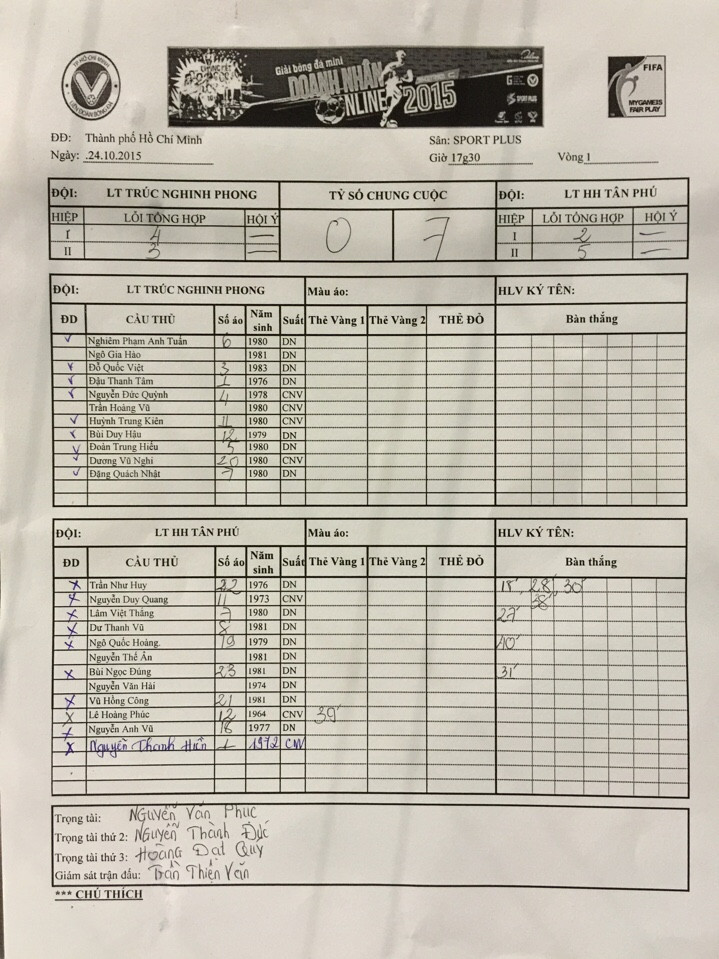 TP HỒ CHÍ MINH
LIÊN ĐOÀN BÓNG ĐÁ
Giải bóng đá mini
DOANH NHÂN
NLINE 2015
SPORT PLUS
FIFA
MY GAME IS
FAIR PLAY
ĐĐ: Thành phố Hồ Chí Minh Sân: SPORT PLUS
Ngày: .24.10.2015 Giờ 17g30 Vòng 1
ĐỘI: LT TRÚC NGHINH PHONG TỶ SỐ CHUNG CUỘC ĐỘI: LT HH TÂN PHÚ
HIỆP LỖI TỔNG HỢP HỘI Ý 0 7 HIỆP LỖI TỔNG HỢP HỘI Ý
I 4 — I 2 —
II 3 — II 5 —
ĐỘI: LT TRÚC NGHINH PHONG Màu áo: HLV KÝ TÊN:
ĐD CẦU THỦ Số áo Năm sinh Suất Thẻ Vàng 1 Thẻ Vàng 2 THẺ ĐỎ Bàn thắng
Nghiêm Phạm Anh Tuấn 6 1980 DN
Ngô Gia Hào 1981 DN
Đỗ Quốc Việt 3 1983 DN
Đậu Thanh Tâm 1 1976 DN
Nguyễn Đức Quỳnh 4 1978 CNV
Trần Hoàng Vũ 1980 CNV
Huỳnh Trung Kiên 11 1980 CNV
Bùi Duy Hậu 12 1979 DN
Đoàn Trung Hiếu 5 1980 DN
Dương Vũ Nghi 20 1980 CNV
Đặng Quách Nhật 7 1980 DN
ĐỘI: LT HH TÂN PHÚ Màu áo: HLV KÝ TÊN:
ĐD CẦU THỦ Số áo Năm sinh Suất Thẻ Vàng 1 Thẻ Vàng 2 THẺ ĐỎ Bàn thắng
X Trần Như Huy 22 1976 DN 18', 28', 30'
X Nguyễn Duy Quang 11 1973 CNV 38'
X Lâm Việt Thắng 7 1980 DN 27'
X Dư Thanh Vũ 8 1981 DN
X Ngô Quốc Hoàng. 19 1979 DN 40'
Nguyễn Thế Ân 1981 DN
X Bùi Ngọc Đúng 23 1981 DN 31'
Nguyễn Văn Hải 1974 DN
X Vũ Hồng Công 21 1981 DN
X Lê Hoàng Phúc 12 1964 CNV 39'
X Nguyễn Anh Vũ 18 1977 DN
X Nguyễn Thanh Hiền 1 1972 CNV
Trọng tài: Nguyễn Văn Phúc
Trọng tài thứ 2: Nguyễn Thành Đức
Trọng tài thứ 3: Hoàng Đạt Quy
Giám sát trận đấu: Trần Thiện Văn
*** CHÚ THÍCH